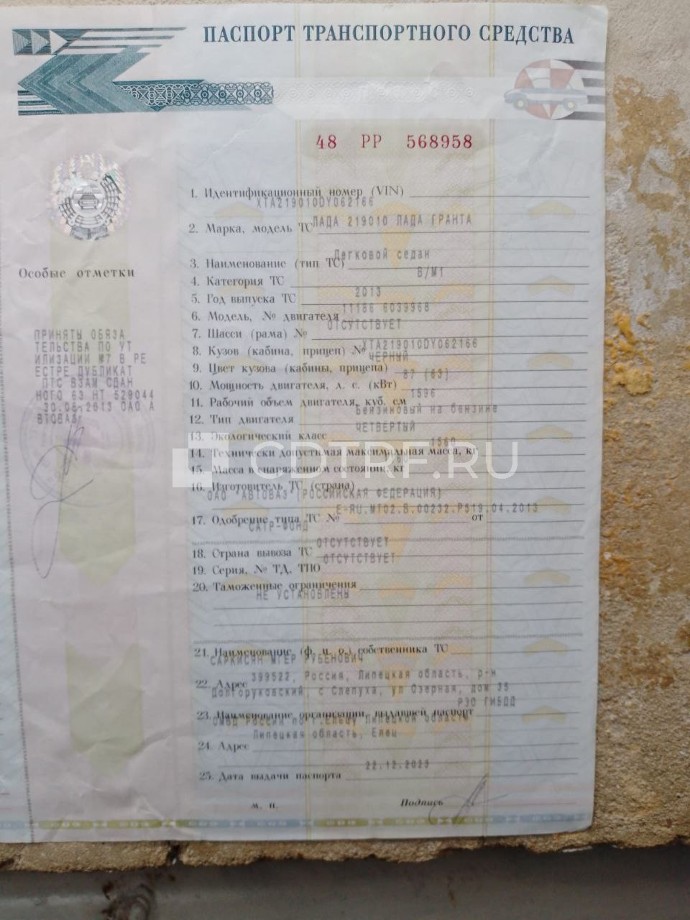 ПАСПОРТ ТРАНСПОРТНОГО СРЕДСТВА
48 РР 568958
1. Идентификационный номер (VIN)
XTA219010DY062166
2. Марка, модель ТС ЛАДА 219010 ЛАДА ГРАНТА
3. Наименование (тип ТС) Легковой седан
4. Категория ТС B/M1
5. Год выпуска ТС 2013
6. Модель, № двигателя 11186 6039968
7. Шасси (рама) № ОТСУТСТВУЕТ
8. Кузов (кабина, прицеп) № XTA219010DY062166
9. Цвет кузова (кабины, прицепа) ЧЕРНЫЙ
10. Мощность двигателя, л. с. (кВт) 87 (63)
11. Рабочий объем двигателя, куб. см 1596
12. Тип двигателя Бензиновый на бензине
13. Экологический класс ЧЕТВЕРТЫЙ
14. Технически допустимая максимальная масса, кг 1560
15. Масса в снаряженном состоянии, кг
16. Изготовитель ТС (страна)
ОАО "АВТОВАЗ" (РОССИЙСКАЯ ФЕДЕРАЦИЯ)
17. Одобрение типа ТС № E-RU.MT02.B.00232.P5 19.04.2013 от
САТР-ФОНД
18. Страна вывоза ТС ОТСУТСТВУЕТ
19. Серия, № ТД, ТПО ОТСУТСТВУЕТ
20. Таможенные ограничения
НЕ УСТАНОВЛЕНЫ
21. Наименование (ф. и. о.) собственника ТС
САРКИСЯН МГЕР РУБЕНОВИЧ
22. Адрес 399522, Россия, Липецкая область, р-н
Долгоруковский, с Слепуха, ул Озерная, дом 35
23. Наименование организации, выдавшей паспорт РЭО ГИБДД
ОМВД России по г.Ельцу Липецкой области
24. Адрес Липецкая область, Елец
25. Дата выдачи паспорта 22.12.2023
м. п. Подпись
Особые отметки
ПРИНЯТЫ ОБЯЗА
ТЕЛЬСТВА ПО УТ
ИЛИЗАЦИИ №7 В РЕ
ЕСТРЕ ДУБЛИКАТ
ПТС ВЗАМ СДАН
НОГО 63 НТ 529044
30.06.2013 ОАО А
ВТОВАЗ
OPTRF.RU